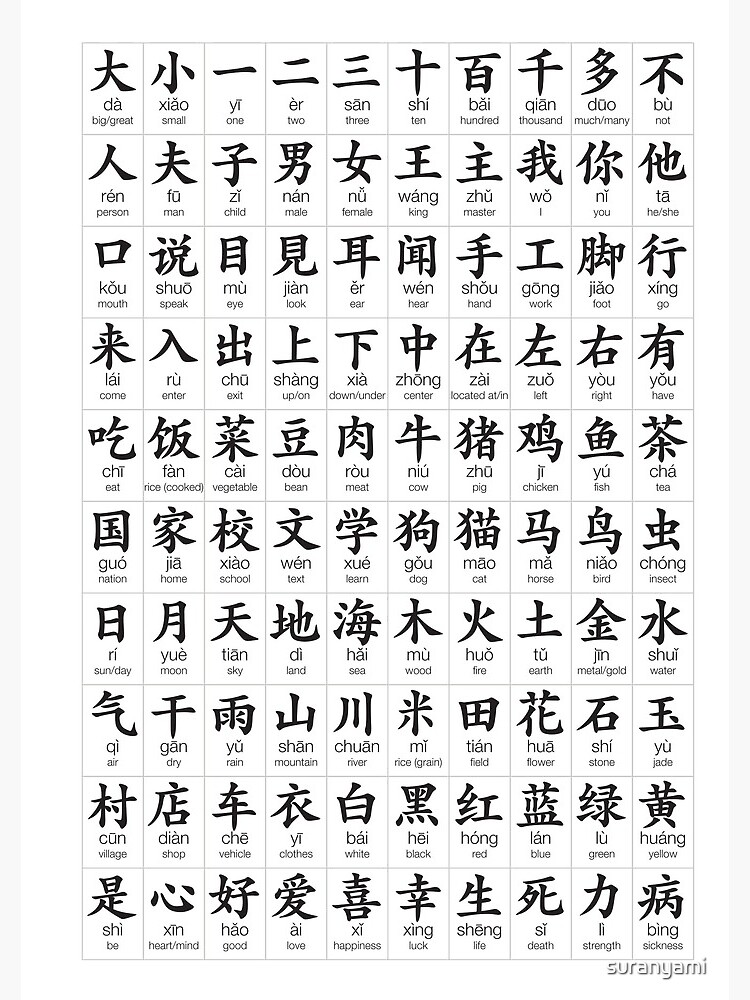 大 小 一 二 三 十 百 千 多 不
dà xiǎo yī èr sān shí bǎi qiān duō bù
big/great small one two three ten hundred thousand much/many not
人 夫 子 男 女 王 主 我 你 他
rén fū zǐ nán nǚ wáng zhǔ wǒ nǐ tā
person man child male female king master I you he/she
口 说 目 見 耳 闻 手 工 脚 行
kǒu shuō mù jiàn ěr wén shǒu gōng jiǎo xíng
mouth speak eye look ear hear hand work foot go
来 入 出 上 下 中 在 左 右 有
lái rù chū shàng xià zhōng zài zuǒ yòu yǒu
come enter exit up/on down/under center located at/in left right have
吃 饭 菜 豆 肉 牛 猪 鸡 鱼 茶
chī fàn cài dòu ròu niú zhū jī yú chá
eat rice (cooked) vegetable bean meat cow pig chicken fish tea
国 家 校 文 学 狗 猫 马 鸟 虫
guó jiā xiào wén xué gǒu māo mǎ niǎo chóng
nation home school text learn dog cat horse bird insect
日 月 天 地 海 木 火 土 金 水
rí yuè tiān dì hǎi mù huǒ tǔ jīn shuǐ
sun/day moon sky land sea wood fire earth metal/gold water
气 干 雨 山 川 米 田 花 石 玉
qì gān yǔ shān chuān mǐ tián huā shí yù
air dry rain mountain river rice (grain) field flower stone jade
村 店 车 衣 白 黑 红 蓝 绿 黄
cūn diàn chē yī bái hēi hóng lán lù huáng
village shop vehicle clothes white black red blue green yellow
是 心 好 爱 喜 幸 生 死 力 病
shì xīn hǎo ài xǐ xìng shēng sǐ lì bìng
be heart/mind good love happiness luck life death strength sickness
suranyami